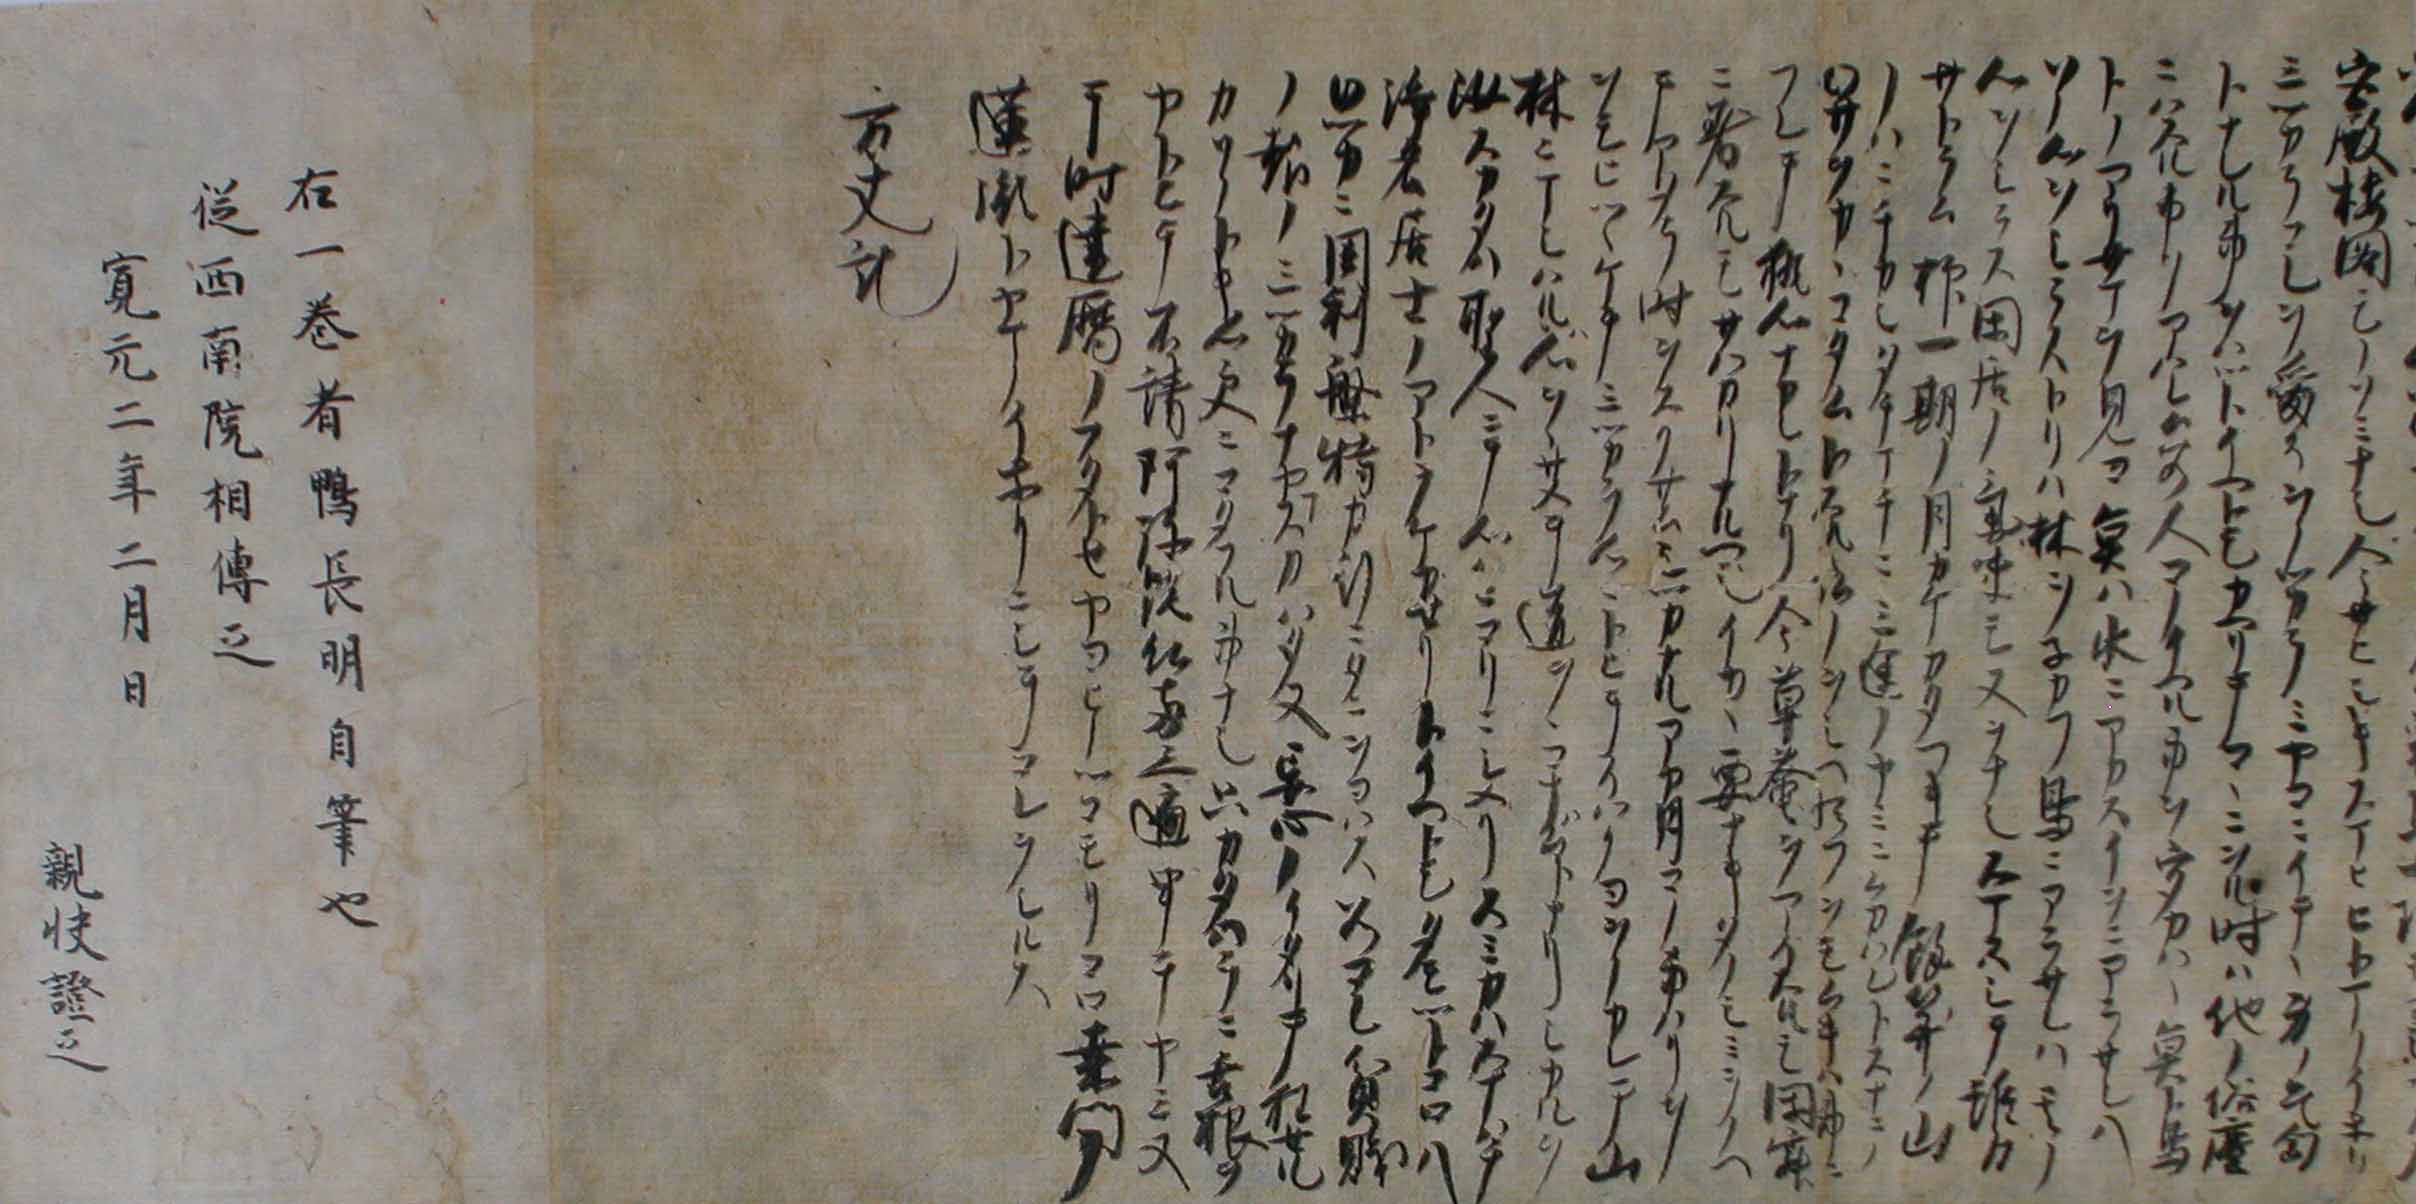 宮殿樓閣モノソミナシ今サヒシキスマヒヒトマノイホリ
ミツカラコレヲ愛スヲノツカラミヤコニイテヽ身ノ乞匃
トナレル事ヲハツトイヘトモカヘリテコヽニヲル時ハ他ノ俗塵
ニハスル事ヲアハレム若人コノイヘル事ヲウタカハヽ魚ト鳥
トノアリサマヲ見ヨ魚ハ水ニアカスイヲニアラサレハ
ソノ心ヲシラストリハ林ヲネカフ鳥ニアラサレハ其ノ
心ヲシラス閑居ノ氣味モ又ヲナシスマスシテ誰カ
サトラム抑一期ノ月カケカタフキテ餘算ノ山
ノハニチカシタチマチニ三途ノヤミニムカハントスナニノ
ワサヲカカコタムトスル佛ノヲシヘ給フヲモムキハ事ニ
フレテ執心ナカレトナリ今草菴ヲアイスルモ閑寂
ニ著スルモサハカリナルヘシイカヽ要ナキタノシミヲノヘ
テアタラ時ヲスクサムシツカナルアカ月コノ事ハリヲ
ヲモヒツヽケテミツカラ心ニトヒテイハクヨヲノカレテ山
林ニマシハルハ心ヲヲサメテ道ヲヲコナハムトナリシカルヲ
汝スカタハ聖人ニテ心ハニコリニシメリスミカハスナハチ
浄名居士ノアトヲケカセリトイヘトモタモツトコロハ
ワツカニ周利槃特カ行ニタニヲヨハス若コレ貧賤
ノ報ノミツカラナヤマスカハタ又妄心ノイタリテ狂セル
カソノトキ心更ニコタフル事ナシ只カタハラニ舌根ヲ
ヤトヒテ不請阿弥陀仏両三遍申テヤミヌ
于時建暦ノフタトセヤヨヒノツコモリコロ桑門ノ
蓮胤トヤマノイホリニシテコレヲシルス
方丈記
右一巻者鴨長明自筆也
従西南院相傳之
寛元二年二月日
親快證之